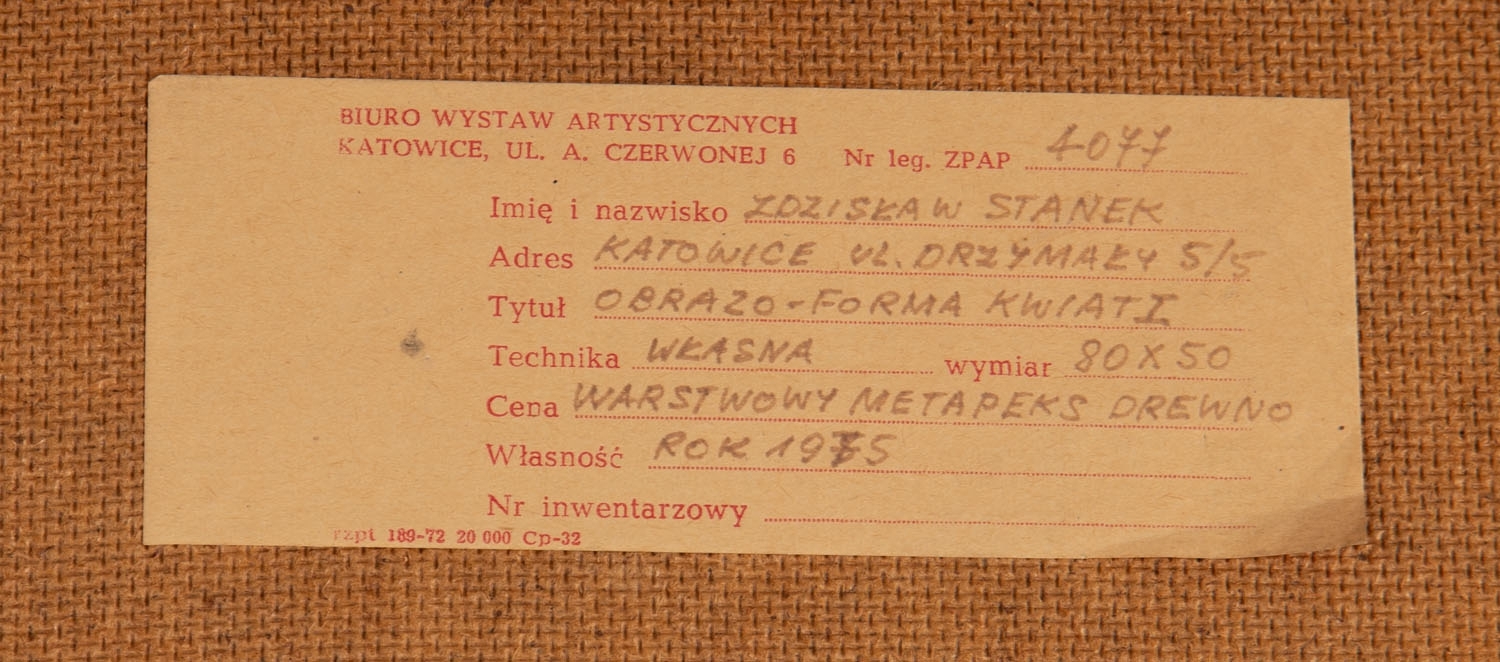 BIURO WYSTAW ARTYSTYCZNYCH
KATOWICE, UL. A. CZERWONEJ 6 Nr leg. ZPAP 4077
Imię i nazwisko ZDZISŁAW STANEK
Adres KATOWICE UL. DRZYMAŁY 5/5
Tytuł OBRAZO-FORMA KWIAT I
Technika WŁASNA wymiar 80X50
Cena WARSTWOWY METAPEKS DREWNO
Własność ROK 1975
Nr inwentarzowy
rzpt 189-72 20 000 Cp-32